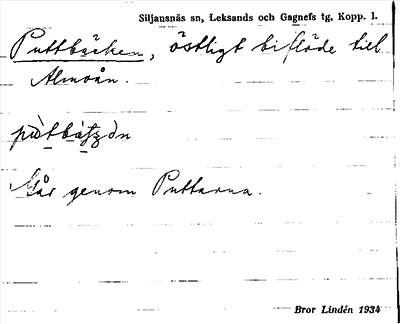 Siljansnäs sn, Leksands och Gagnefs tg, Kopp. l.
Puttbäcken, östligt biflöde till
Almoån.
Går genom Puttarna.
Bror Lindén 1934